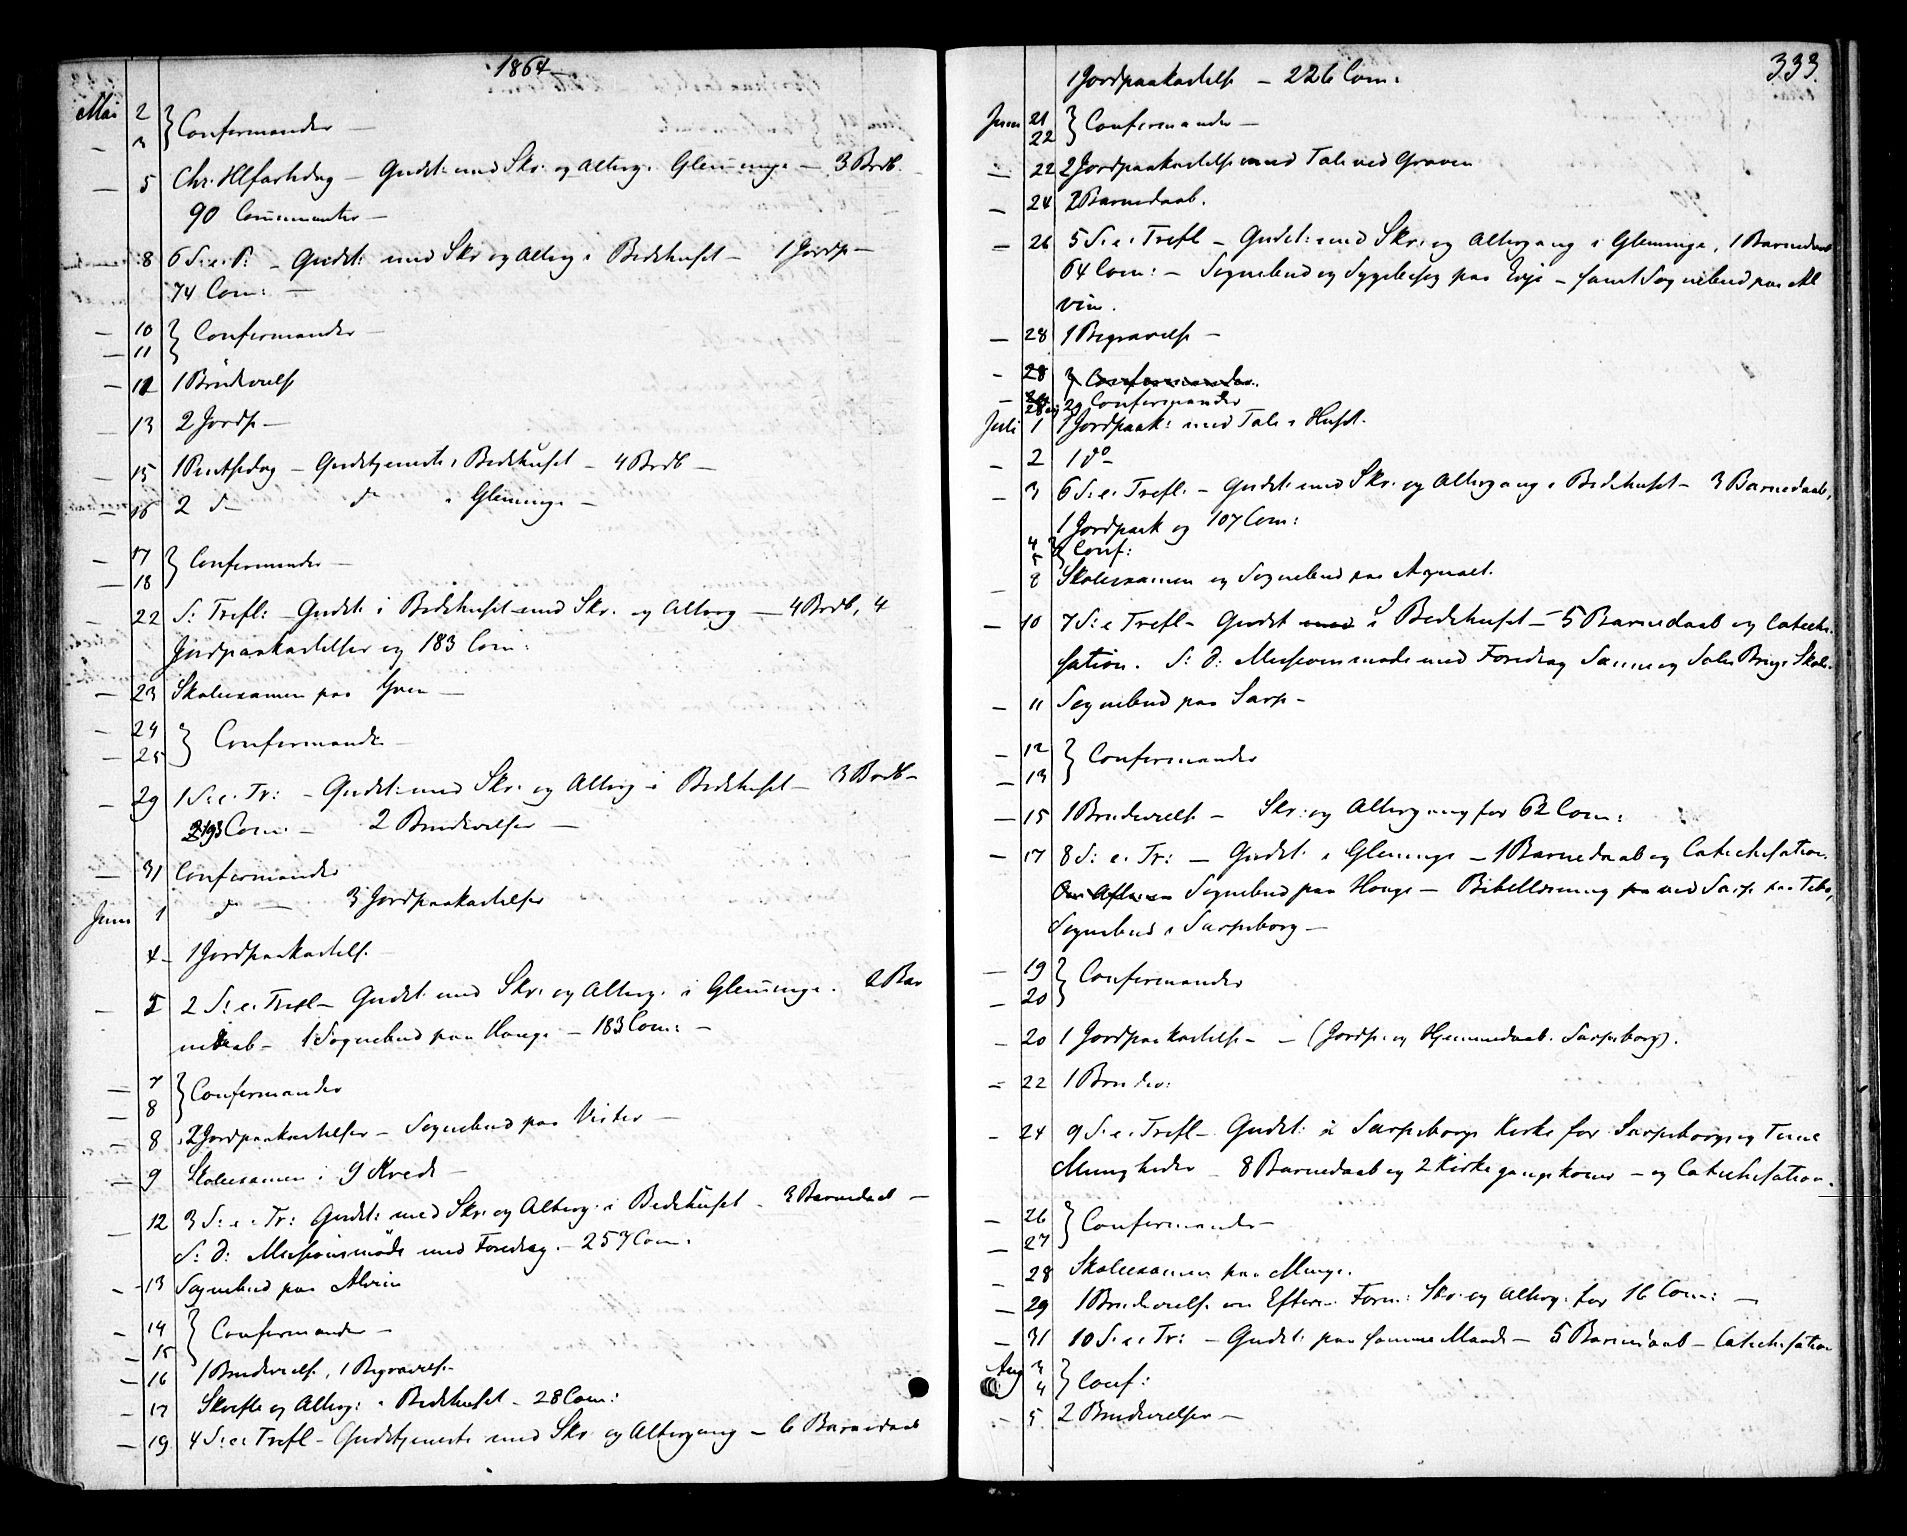 1864
Mai 2 } Confirmander –
– 3
– 5 Chr. Hlfartsdag – Gudst: med Skr. og Alterg. i Glemminge – 3 Brdb.
90 Communicanter –
– 8 6 S. e. P: – Gudst: med Skr og Alterg i Bedehuset – 1 Jordp –
74 Com: –
– 10 } Confirmander –
– 11
– 12 1 Brudevielse
– 13 2 Jordp –
– 15 1 Pintsedag – Gudstjeneste i Bedehuset – 4 Brdb –
– 16 2 d– d– i Glemminge –
– 17 } Confirmander –
– 18
– 22 S: Trefl: – Gudst: i Bedehuset med Skr. og Alterg – 4 Brdb, 4
Jordpaakastelser og 183 Com:
– 23 Skoleexamen paa Yven –
– 24 } Confirmander –
– 25
– 29 1 S. e. Tr: – Gudst: med Skr. og Alterg i Bedehuset – 3 Bardb –
193 Com: – 2 Brudevielser –
– 31 Confirmander
Juni 1 d – 3 Jordpaakastelser
4 – 1 Jordpaakastelse.
– 5 2 S: e. Trefl – Gudst. med Skr. og Alterg. i Glemminge. 2 Bar
nedaab – 1 Sognebud paa Hauge – 183 Com: –
– 7 } Confirmander
– 8
– 8 2 Jordpaakastelser – Sognebud paa Vister –
– 9 Skoleexamen i 9 Kreds –
– 12 3 S: e: Tr: Gudst: med Skr. og Alterg. i Bedehuset – 3 Barnedaab –
S: D: Missionsmøde med Foredrag. – 257 Com:
– 13 Sognebud paa Alvim
– 14 } Confirmander –
– 15
– 16 1 Brudevielse, 1 Begravelse
– 17 Skrifte og Alterg: i Bedehuset – 28 Com:
– 19 4 S: e: Trefl – Gudstjeneste med Skr og Altergang – 6 Barnedaab
333.
1 Jordpaakastelse – 226 Com:
Juni 21 } Confirmander –
22
– 22 2 Jordpaakastelse med Tale ved Graven
– 24 2 Barnedaab.
– 26 5 S: e: Trefl – Gudst: med Skr. og Altergang i Glemminge, 1 Barnedaab
64 Com: – Sognebud og Sygebesøg paa Evje – samt Sognebud paa Al
vim.
– 28 1 Begravelse –
– 28 } Confirmander.
– 28 og 29 Confirmander
Juli 1 1 Jordpaak: med Tale i Huset.
– 2 1 do –
– 3 6 S: e. Trefl. – Gudst: med Skr. og Altergang i Bedehuset – 3 Barnedaab,
1 Jordpaak og 107 Com:
4 } Conf:
5
– 8 Skoleexamen og Sognebud paa Agnalt.
– 10 7 S: e Trefl – Gudst med i Bedehuset – 5 Barnedaab og Catechi-
sation. S: D: Missionsmøde med Foredrag
– 11 Sognebud paa Sarp –
– 12 } Confirmander
– 13
– 15 1 Brudevielse – Skr: og Altergang for 62 Com:
– 17 8 S: e. Tr: – Gudst: i Glemminge – 1 Barnedaab og Catechisation.
Sognebud paa Hauge – Bibellæsning ved Sarp
Sognebud i Sarpsborg –
– 19 } Confirmander
– 20
– 20 1 Jordpaakastelse – – (Jordp. og Hjemmedaab. Sarpsborg).
– 22 1 Brudev:
– 24 9 S: e. Trefl – Gudst: i Sarpsborgs Kirke for Sarpsborgs og Tune
Menigheder – 8 Barnedaab og 2 Kirkegangskoner – og Catechisation.
– 26 } Confirmander –
– 27
– 28 Skoleexamen paa Minge.
– 29 1 Brudevielse Efterm. Form: Skr. og Alterg: for 16 Com: –
– 31 10 S: e: Tr: – Gudst: paa samme Maade – 5 Barnedaab – Catechisation
Aug 3 } Conf:
4
– 5 2 Brudevielser –